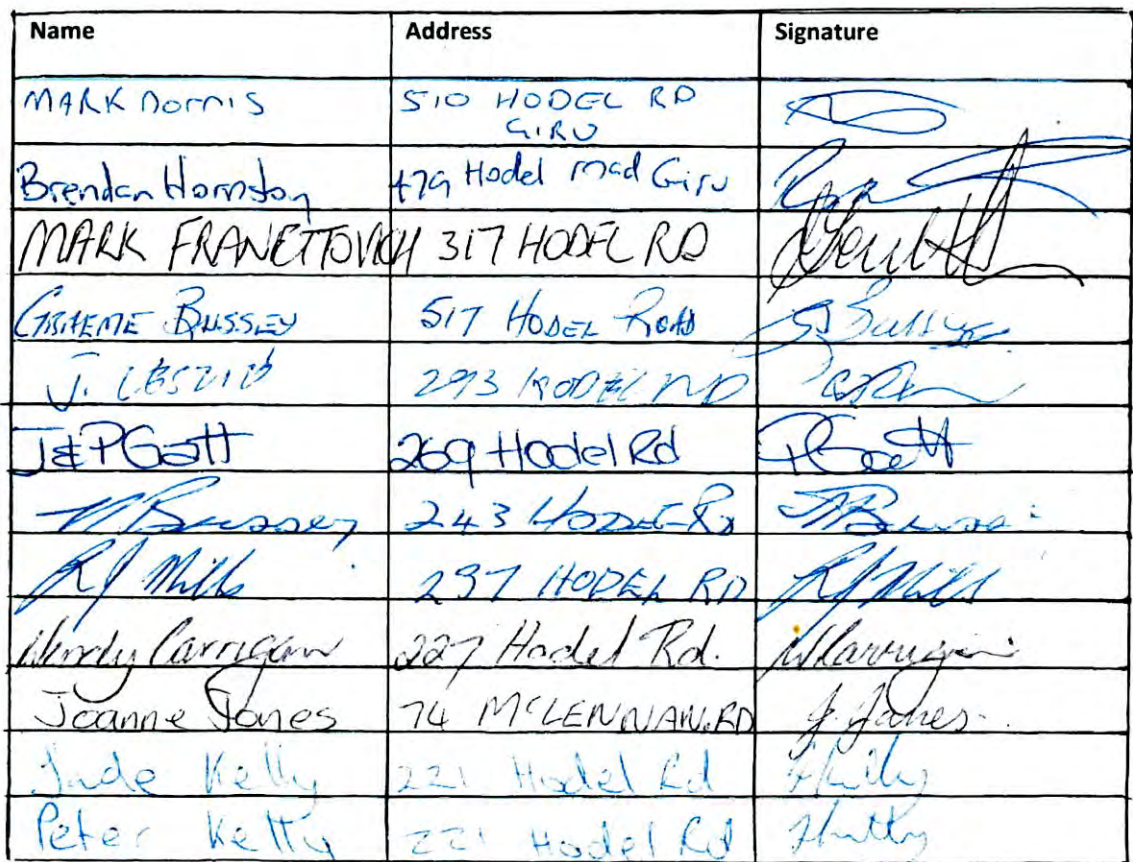 Name Address Signature
MARK Dornis 510 HODEL RD
GIRU
Brendan Hornston 479 Hodel road Giru
MARK FRANETTOVICH 317 HODEL RD
GRAEME BUSSEY 517 HODEL ROAD G Bussey
J. 293 HODEL RD
J & P Gatt 269 Hodel Rd P Gatt
Bussey 243 HODEL Rd
RJ Mills 297 HODEL RD RJ Mills
Wendy Carrigan 227 Hodel Rd. W Carrigan
Joanne Jones 74 McLENNAN.RD J. Jones.
Jade Kelly 221 Hodel Rd
Peter Kelly 221 Hodel Rd